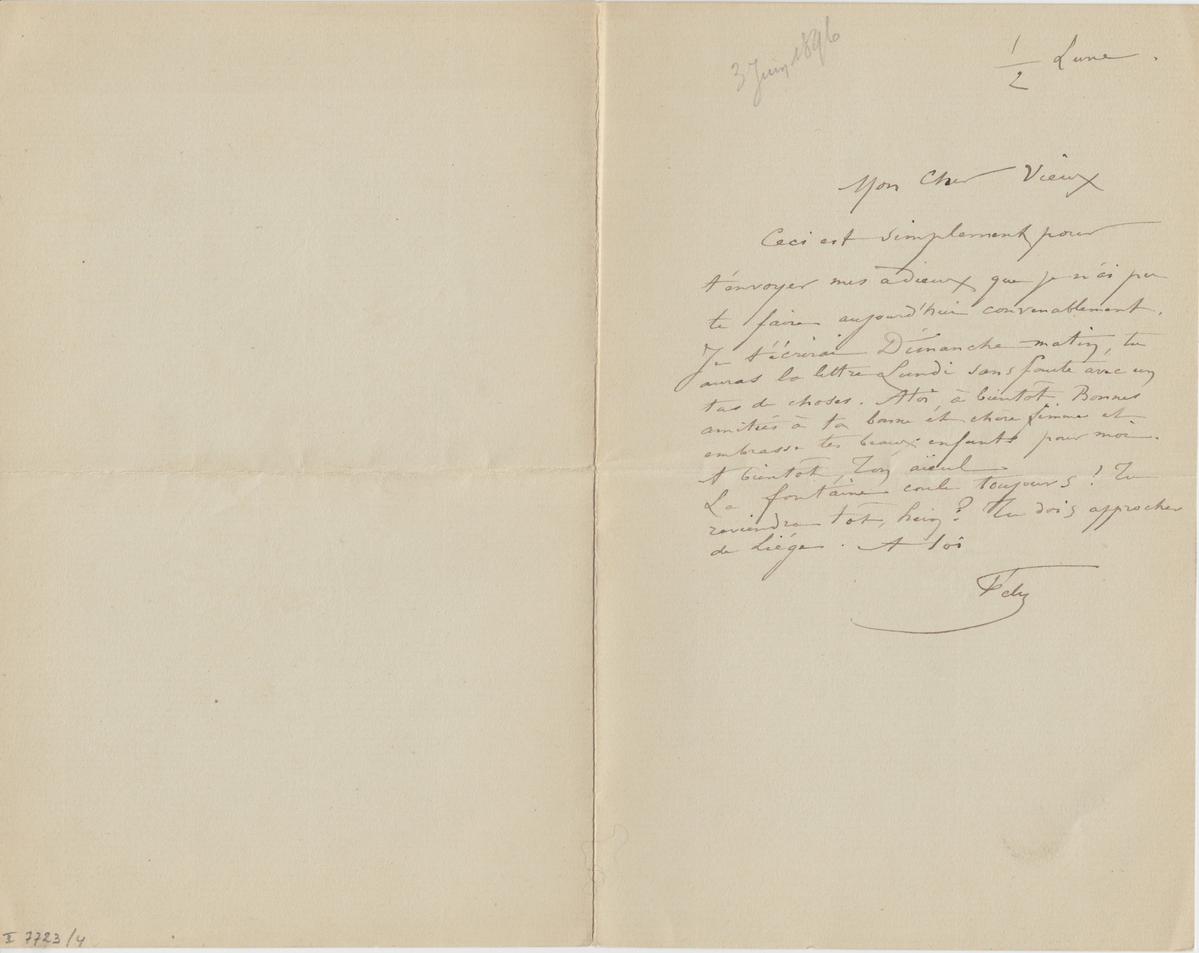 3 Juin 1896
1/2 Lune.
Mon Cher Vieux
Ceci est simplement pour
t'envoyer mes adieux que je n'ai pu
te faire aujourd'hui convenablement.
Je t'écrirai Dimanche matin, tu
auras la lettre Lundi sans faute avec un
tas de choses. A toi, à bientôt. Bonnes
amitiés à ta bonne et chère femme et
embrasse tes beaux enfants pour moi.
A bientôt, Ton aïeul
La fontaine coule toujours! Tu
reviendra tôt, hein? Tu dois approcher
de Liége. A toi
Fély
II 7723/4